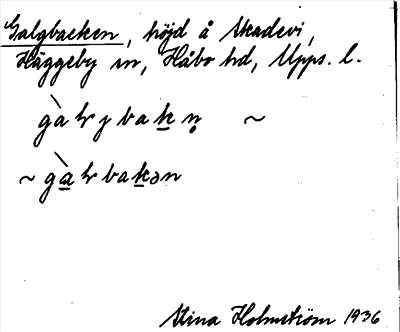 Galgbacken, höjd å Skadevi,
Häggeby sn, Håbo hd, Upps. l.
gàlrɟbakn̥ ~
~ gàlrbakən
Stina Holmström 1936